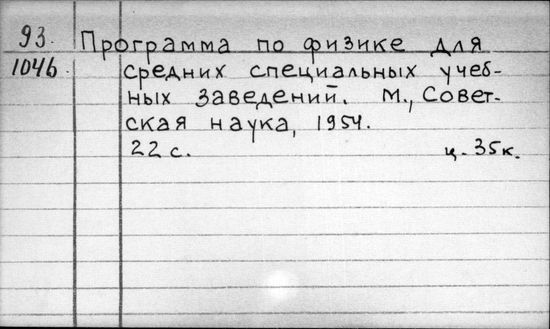 93. Программа по физике для
1046. средних специальных учеб-
ных заведений. М., Совет-
ская наука, 1954.
22 с. ц. 35к.